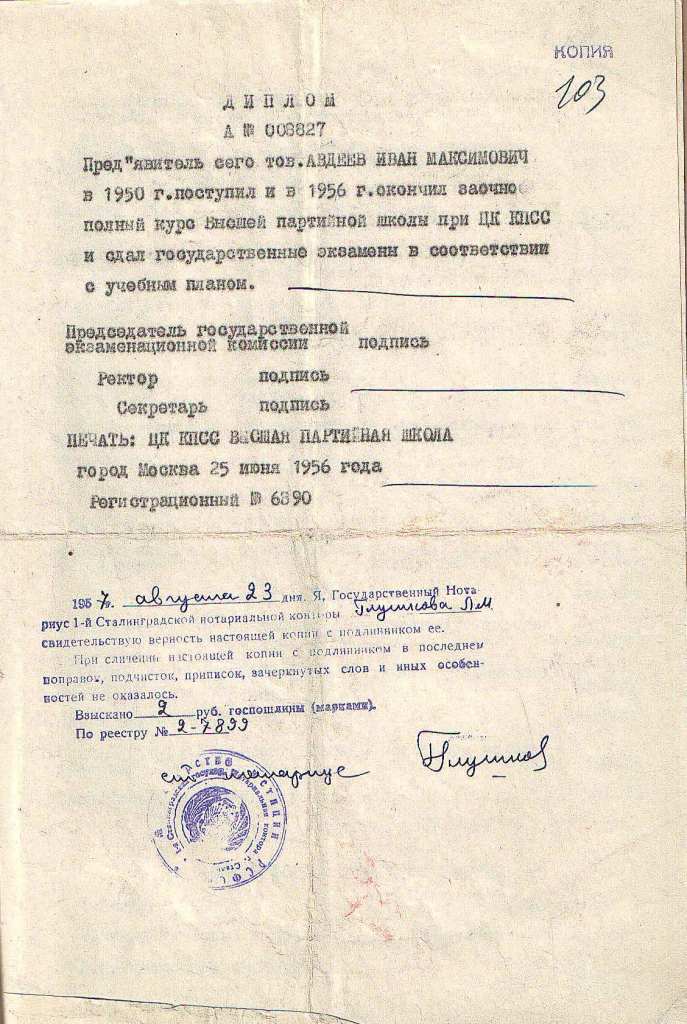 КОПИЯ
103
ДИПЛОМ
А № 003827
Пред"явитель сего тов.АВДЕЕВ ИВАН МАКСИМОВИЧ
в 1950 г.поступил и в 1956 г.окончил заочно
полный курс Высшей партийной школы при ЦК КПСС
и сдал государственные экзамены в соответствии
с учебным планом.
Председатель государственной
экзаменационной комиссии подпись
Ректор подпись
Секретарь подпись
ПЕЧАТЬ: ЦК КПСС ВЫСШАЯ ПАРТИЙНАЯ ШКОЛА
город Москва 25 июня 1956 года
Регистрационный № 6390
1957г. августа 23 дня. Я, Государственный Нота-
риус 1-й Сталинградской нотариальной конторы Глушкова Л.М.
свидетельствую верность настоящей копии с подлинником ее.
При сличении настоящей копии с подлинником в последнем
поправок, подчисток, приписок, зачеркнутых слов и иных особен-
ностей не оказалось.
Взыскано 2 руб. госпошлины (марками).
По реестру № 2-7899
ст. нотариус Глушков
ЮСТИЦИИ РСФСР